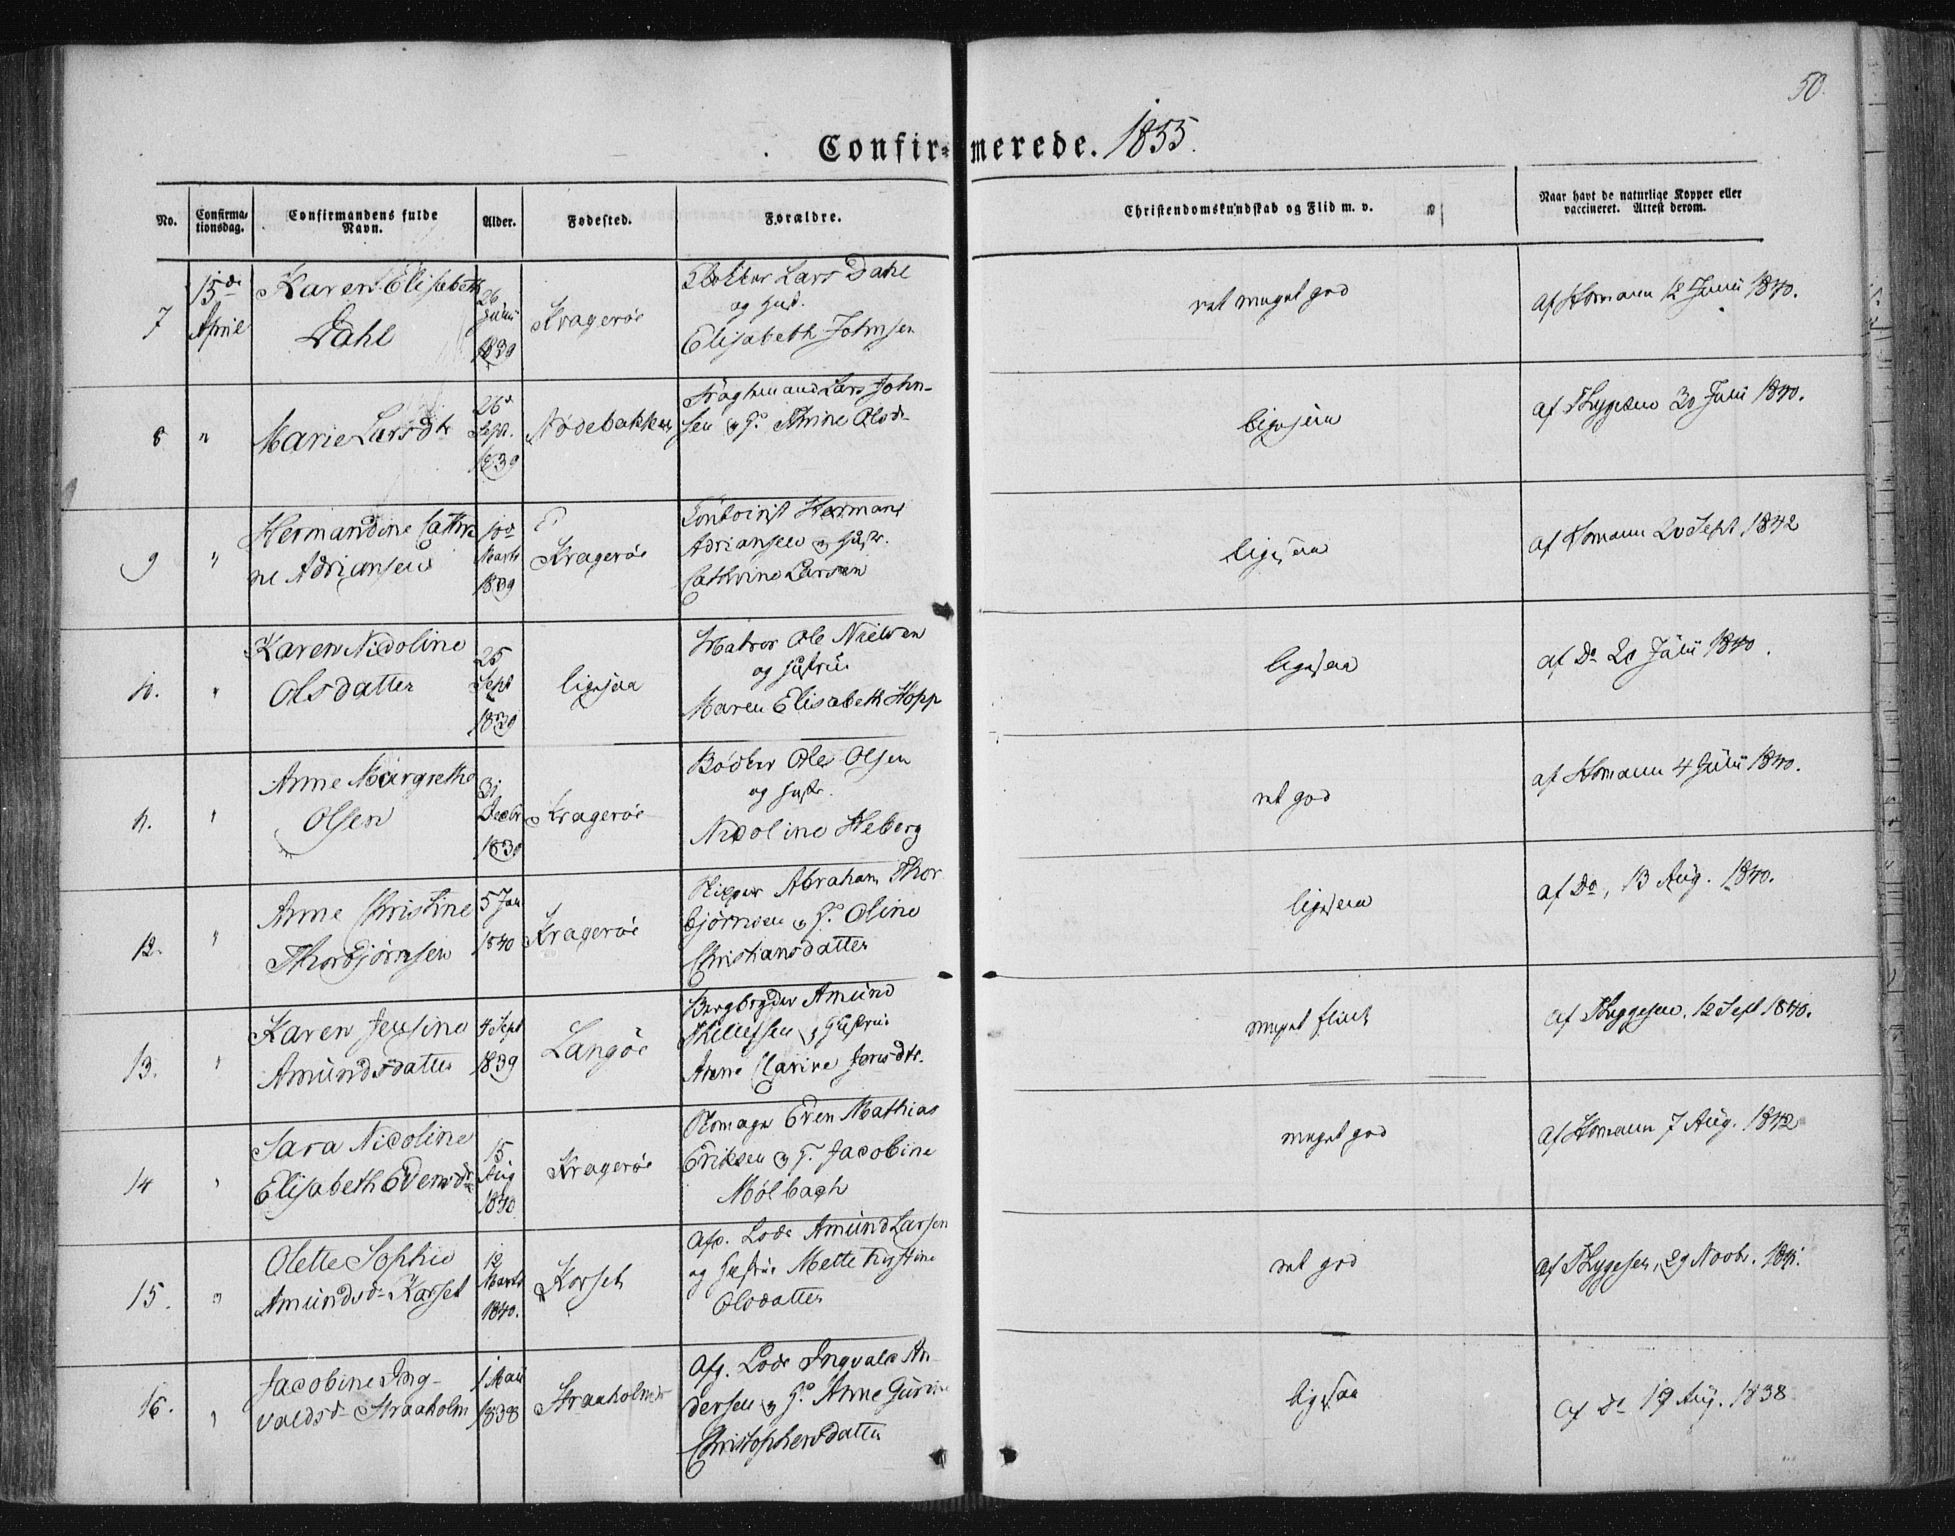 50.
Confirmerede. 1855.
No.
Confirma-
tionsdag.
Confirmandens fulde
Navn.
Alder.
Fødested.
Forældre.
Christendomskundskab og Flid m. v.
Naar havt de naturlige Kopper eller
vaccineret. Attest derom.
7
15de
April
Karen Elisabeth
Dahl
26
Juni
1839
Kragerøe
Lars Dahl
og Hus.
Elisabeth Johnsen
ret meget god
af Homann 12 Junii 1840.
8
"
Marie Larsdtr
26d
Sept.
1839
Nødebakken
Lars John-
sen og H. Thrine Olsd.
ligesaa
af Thygesen 30 Juni 1840.
9
"
Hermandine Cathri
ne Adriansen
10d
Marts
1839
Kragerøe
Herman
Adriansen og Hustr.
Cathrine Larsen
ligesaa
af Homann 20 Sept 1842
10.
"
Karen Nicoline
Olsdatter
25
Sept
1839
ligesaa
Matros Ole Nielsen
og Hustrue
Maren Elisabeth Hopp
ligesaa
af Do 20 Julii 1840.
11.
"
Anne Margrethe
Olsen
31
Decbr
1839
Kragerøe
Bødker Ole Olsen
og Hustr.
Nicoline Heberg
ret god
af Homann 4 Julii 1840.
12.
"
Anne Christine
Thorbjørnsen
5 Jan
1840
Kragerøe
Skipper Abraham Thor
bjørnsen og H. Oline
Christiansdatter
ligesaa
af Do, 13 Aug. 1840.
13.
"
Karen Jensine
Amundsdatter
4 Sept
1839
Langøe
Bergbryder Amund
og Hustrue
Anne Clarine Jensdtr.
meget flink
af Thygesen. 12 Sept 1840.
14
"
Sara Nicoline
Elisabeth Evensdr
15
Aug
1840
Kragerøe
Even Mathias
Eriksen og H. Jacobine
Mølbach
meget god
af Homann 7 Aug. 1842
15.
"
Olette Sophie
Amundsd. Karset
12
Marts
1840.
Korset
Afg. Lods Amund Larsen
og Hustrue Mette Kirstine
Olsdatter
ret god
af Thygesen, 29 Novbr. 1841.
16.
"
Jacobine Ing-
valdsd. Straaholm
1 Mai
1838
Straaholmen
Afg. Lods Ingvald An-
dersen og H. Anne Gurine
Christophersdatter
ligesaa
af Do 19 Aug. 1838